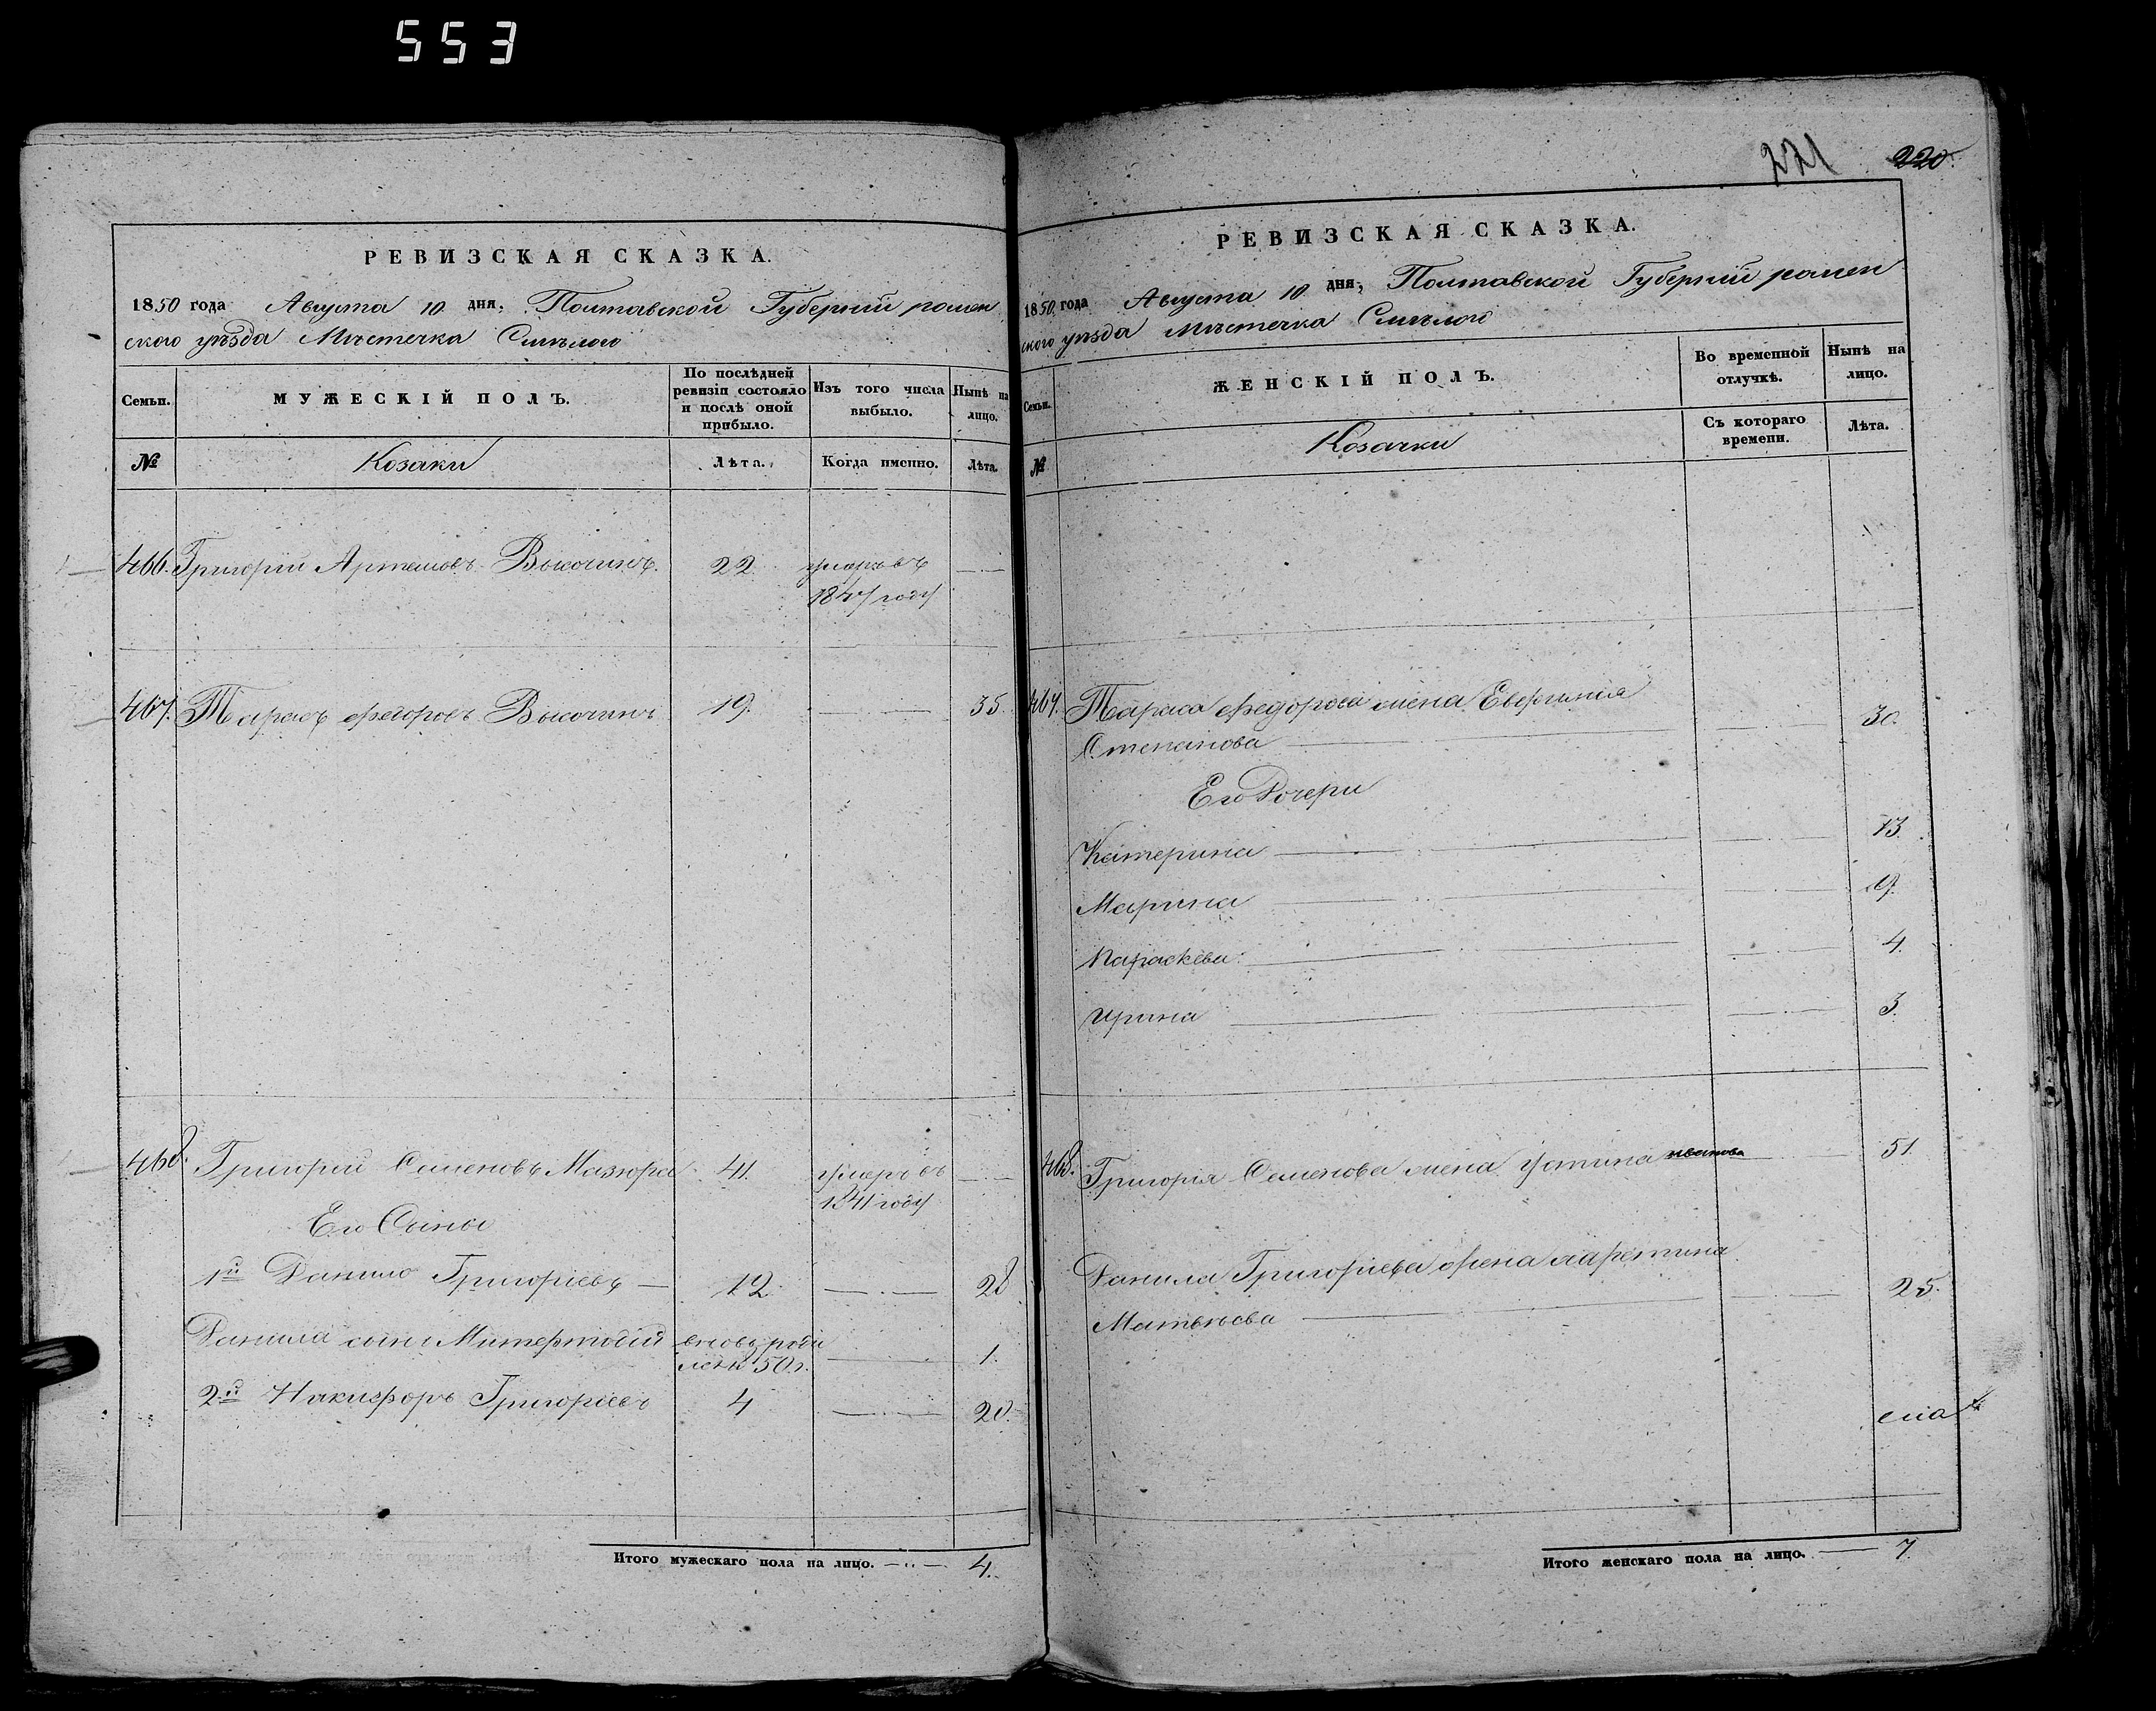 553
РЕВИЗСКАЯ СКАЗКА.
1850 года Августа 10 дня, Полтавской Губерніи ромен
ского уѣзда Мѣстечка Смѣлого
Семьи.
МУЖЕСКІЙ ПОЛЪ.
По послѣдней ревизіи состояло и послѣ оной прибыло.
Изъ того числа выбыло.
Нынѣ на лицо.
№
Козаки
Лѣта.
Когда именно.
Лѣта.
466. Григорій Артемовъ Высочинъ. 22 умеръ въ
1847 году
467. Тарасъ Федоровъ Высочинъ 19. 35.
468. Григорій Семеновъ Мазюра 41. умеръ въ
1841 году
Его Сыны
1й Данило Григоріевъ 12 28
Данила сынъ вновь рож
ленъ 50 г. 1.
2й Никифоръ Григоріевъ 4 20.
Итого мужескаго пола на лицо. 4.
221 220.
РЕВИЗСКАЯ СКАЗКА.
1850 года Августа 10 дня, Полтавской Губерніи ромен
ского уѣзда Мѣстечка Смѣлого
Семьи.
ЖЕНСКІЙ ПОЛЪ.
Во временной отлучкѣ.
Нынѣ на лицо.
№
Козачки
Съ котораго времени.
Лѣта.
467. Тараса Федорова жена Евгенія
Степанова 30.
Его Дочери
Катерина 13.
Марина 9.
Параскева 4.
Ирина 3.
468. Григорія Семенова жена Устина иванова 51.
Данила Григоріева жена
Матвѣева 25.
Итого женскаго пола на лицо. 7.